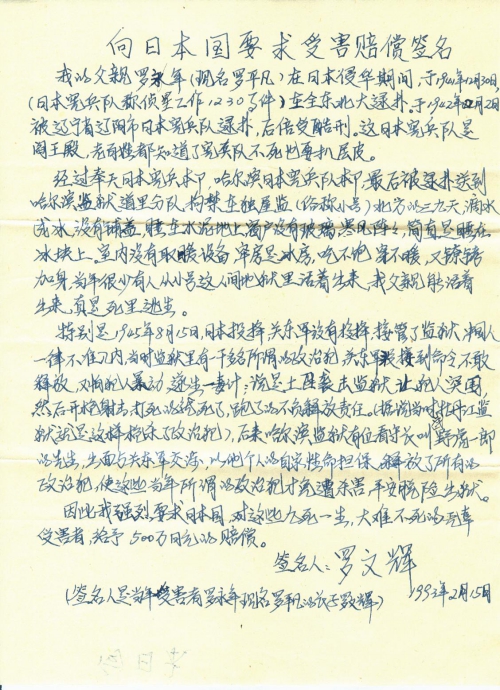 向日本国要求受害赔偿签名
我的父亲罗永年(现名罗平凡)在日本侵华期间,于1941年12月30日,
(日本宪兵队称侦星工作1230事件)在全东北大逮扑,于1942年2月2日
被辽宁省辽阳市日本宪兵队逮扑,后倍受酷刑。这日本宪兵队是
阎王殿,老百姓都知道了宪兵队不死也要扒层皮。
经过奉天日本宪兵本甲,哈尔滨日本宪兵队本甲,最后被逮扑送到
哈尔滨监狱道里分队,拘禁在独居监(俗称小号)北方的三九天,滴水
成冰,没有铺盖,睡在水泥地上,窗户没有玻璃,寒风阵阵,简直是睡在
冰块上。室内没有取暖设备,牢房是冰房,吃不饱,穿不暖,又镣铐
加身,当年很少有人从小号这人间地狱里活着出来,我父亲能活着
出来,真是死里逃生。
特别是1945年8月15日,日本投降,关东军没有投降,接管了监狱,中国人
一律不准入内,当时监狱里有千多名所谓的政治犯,关东军接到命令,不敢
释放,又怕犯人暴动,遂生一毒计:说是土匪袭击监狱,让犯人突围,
然后开枪射击,打死的就死了,跑了的不负释放责任。(据说当时牡丹江监
狱就是这样枪杀了政治犯),后来哈尔滨监狱有位看守长叫
的先生,出面与关东军交涉,以他个人的自家性命担保,释放了所有的
政治犯,使这些当年所谓的政治犯才免遭杀害,平安脱险出狱。
因此我强烈要求日本国,对这些九死一生,大难不死的无辜
受害者,给予500万日元的赔偿。
签名人:罗文辉
(签名人是当年受害者罗永年现名罗平凡的长子罗文辉) 1993年2月15日